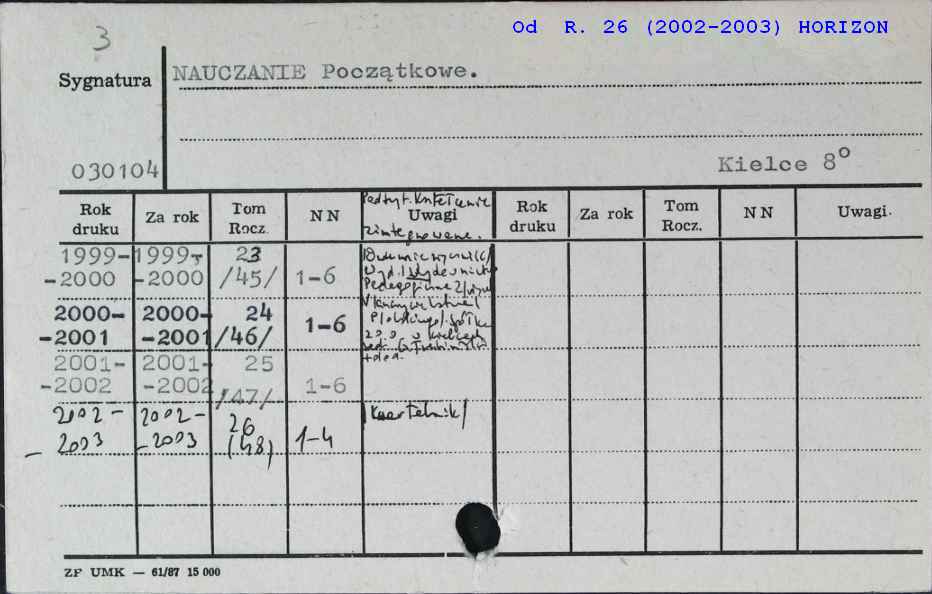 Od R. 26 (2002-2003) HORIZON
3
Sygnatura
NAUCZANIE Początkowe.
030104
Kielce 8°
Rok druku
Za rok
Tom Rocz.
NN
Podtyt. Kształcenie
Uwagi
zintegrowane.
Rok druku
Za rok
Tom Rocz.
NN
Uwagi.
1999- 1999- 23
-2000 -2000 /45/ 1-6
2000- 2000- 24
-2001 -2001 /46/ 1-6
2001- 2001- 25
-2002 -2002 /47/ 1-6
Pedagogiczne
20.0. w Kielcach
2002- 2002- 26 /Kwartalnik/
-2003 -2003 (48) 1-4
ZP UMK — 61/87 15 000